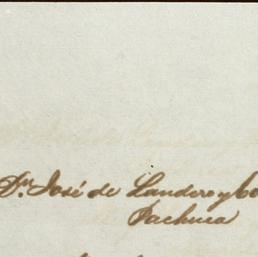 Dn. José de Landero y Co
Pachuca